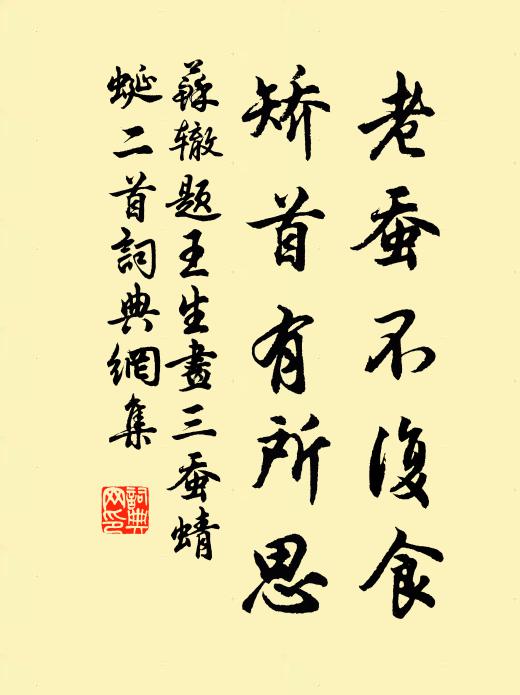 老蚕不復食
矫首有所思
蘇辙题王生畫三蚕蜻
蜓二首詞典網集
詞典
网印